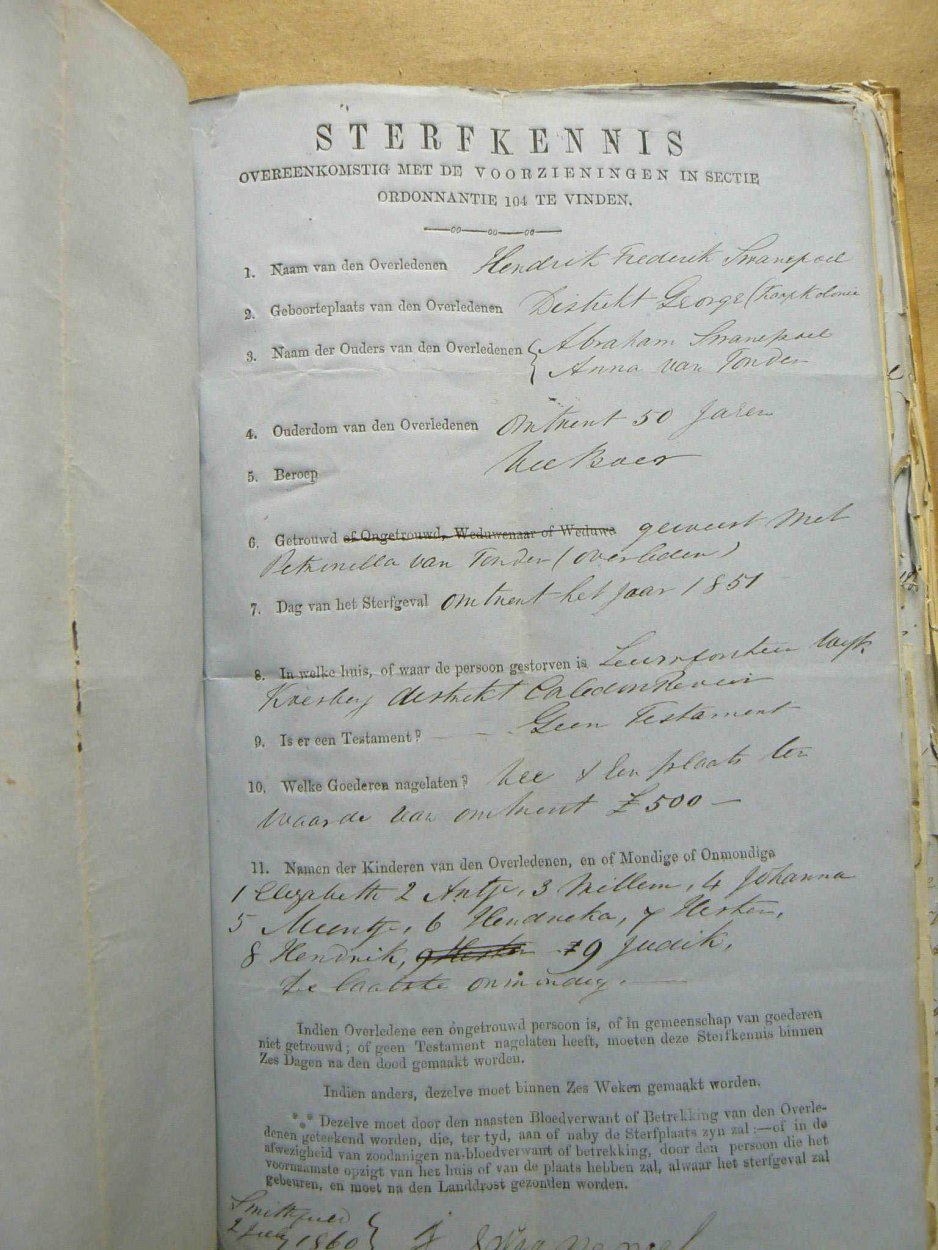 STERFKENNIS
OVEREENKOMSTIG MET DE VOORZIENINGEN IN SECTIE
ORDONNANTIE 104 TE VINDEN.
1. Naam van den Overledenen Hendrik Frederik Swanepoel
2. Geboorteplaats van den Overledenen Distrikt George (Kaap Kolonie
3. Naam der Ouders van den Overledenen { Abraham Swanepoel
Anna van Tonder
4. Ouderdom van den Overledenen Omtrent 50 Jaren
5. Beroep Vee Boer
6. Getrouwd of Ongetrouwd, Weduwenaar of Weduwe geweest met
Petronella van Tonder (overleden)
7. Dag van het Sterfgeval Omtrent het Jaar 1851
8. In welke huis, of waar de persoon gestorven is Leeuwfontein Wyk
Koesberg distrikt Caledon Revier
9. Is er een Testament? — Geen Testament
10. Welke Goederen nagelaten? Vee & Een plaats ter
waarde van omtrent £500 —
11. Namen der Kinderen van den Overledenen, en of Mondige of Onmondige
1 Elizabeth 2 Antje, 3 Willem, 4 Johanna
5 Muntje, 6 Hendrieka, 7 Hester,
8 Hendrik, 9 Judik,
de laatste onmondig. —
Indien Overledene een ongetrouwd persoon is, of in gemeenschap van goederen
niet getrouwd; of geen Testament nagelaten heeft, moeten deze Sterfkennis binnen
Zes Dagen na den dood gemaakt worden.
Indien anders, dezelve moet binnen Zes Weken gemaakt worden.
*** Dezelve moet door den naasten Bloedverwant of Betrekking van den Overle-
denen geteekend worden, die, ter tyd, aan of naby de Sterfplaats zyn zal:—of in de
afwezigheid van zoodanigen na-bloedverwant of betrekking, door den persoon die het
voornaamste opzigt van het huis of van de plaats hebben zal, alwaar het sterfgeval zal
gebeuren, en moet na den Landdrost gezonden worden.
Smithfield
1860